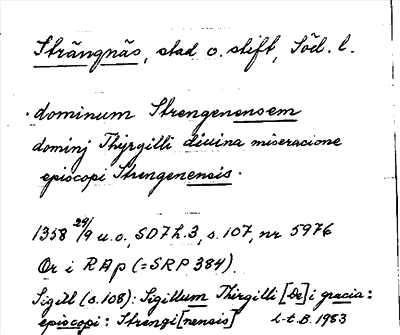 Strängnäs, stad o. stift, Söd. l.
dominum Strengenensem
dominj Thyrgilli diuina miseracione
episcopi Strengenensis.
1358 29/9 u.o., SD7 h.3, s. 107, nr 5976
Or i RAp (=SRP 384).
Sigill (s.108): Sigillum Thirgilli [De]i gracia:
episcopi: Strengi[nensis] L-t.B. 1983